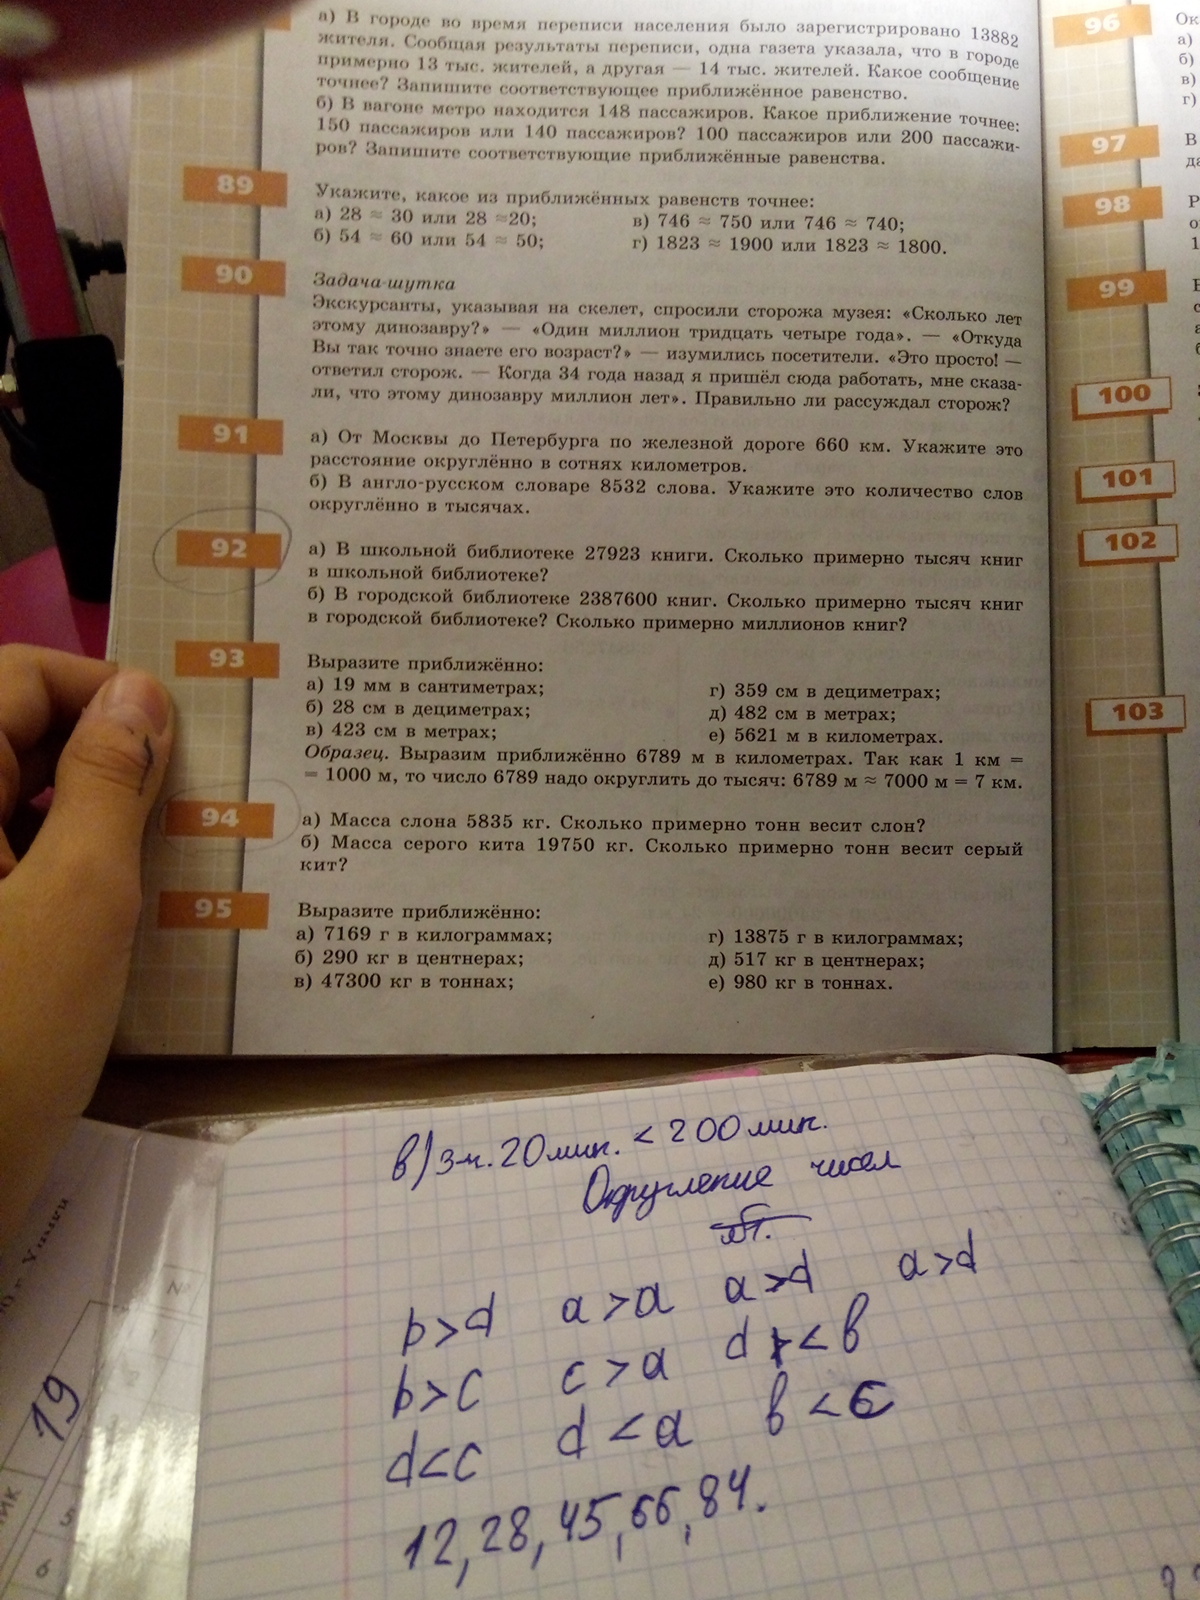 а) В городе во время переписи населения было зарегистрировано 13882
жителя. Сообщая результаты переписи, одна газета указала, что в городе
примерно 13 тыс. жителей, а другая — 14 тыс. жителей. Какое сообщение
точнее? Запишите соответствующее приближённое равенство.
б) В вагоне метро находится 148 пассажиров. Какое приближение точнее:
150 пассажиров или 140 пассажиров? 100 пассажиров или 200 пассажи-
ров? Запишите соответствующие приближённые равенства.
89
Укажите, какое из приближённых равенств точнее:
а) 28 ≈ 30 или 28 ≈20; в) 746 ≈ 750 или 746 ≈ 740;
б) 54 ≈ 60 или 54 ≈ 50; г) 1823 ≈ 1900 или 1823 ≈ 1800.
90
Задача-шутка
Экскурсанты, указывая на скелет, спросили сторожа музея: «Сколько лет
этому динозавру?» — «Один миллион тридцать четыре года». — «Откуда
Вы так точно знаете его возраст?» — изумились посетители. «Это просто! —
ответил сторож. — Когда 34 года назад я пришёл сюда работать, мне сказа-
ли, что этому динозавру миллион лет». Правильно ли рассуждал сторож?
91
а) От Москвы до Петербурга по железной дороге 660 км. Укажите это
расстояние округлённо в сотнях километров.
б) В англо-русском словаре 8532 слова. Укажите это количество слов
округлённо в тысячах.
92
а) В школьной библиотеке 27923 книги. Сколько примерно тысяч книг
в школьной библиотеке?
б) В городской библиотеке 2387600 книг. Сколько примерно тысяч книг
в городской библиотеке? Сколько примерно миллионов книг?
93
Выразите приближённо:
а) 19 мм в сантиметрах; г) 359 см в дециметрах;
б) 28 см в дециметрах; д) 482 см в метрах;
в) 423 см в метрах; е) 5621 м в километрах.
Образец. Выразим приближённо 6789 м в километрах. Так как 1 км =
= 1000 м, то число 6789 надо округлить до тысяч: 6789 м ≈ 7000 м = 7 км.
94
а) Масса слона 5835 кг. Сколько примерно тонн весит слон?
б) Масса серого кита 19750 кг. Сколько примерно тонн весит серый
кит?
95
Выразите приближённо:
а) 7169 г в килограммах; г) 13875 г в килограммах;
б) 290 кг в центнерах; д) 517 кг в центнерах;
в) 47300 кг в тоннах; е) 980 кг в тоннах.
96
Ок
а)
б)
в)
г)
97
В
да
98
Р
о
1
99
100
101
102
103
в) 3 ч. 20 мин. < 200 мин.
Округление чисел
b > d a > a a > d a > d
b > c c > a d < b
d < c d < a b < c
12, 28, 45, 66, 84.
19
№
5
6